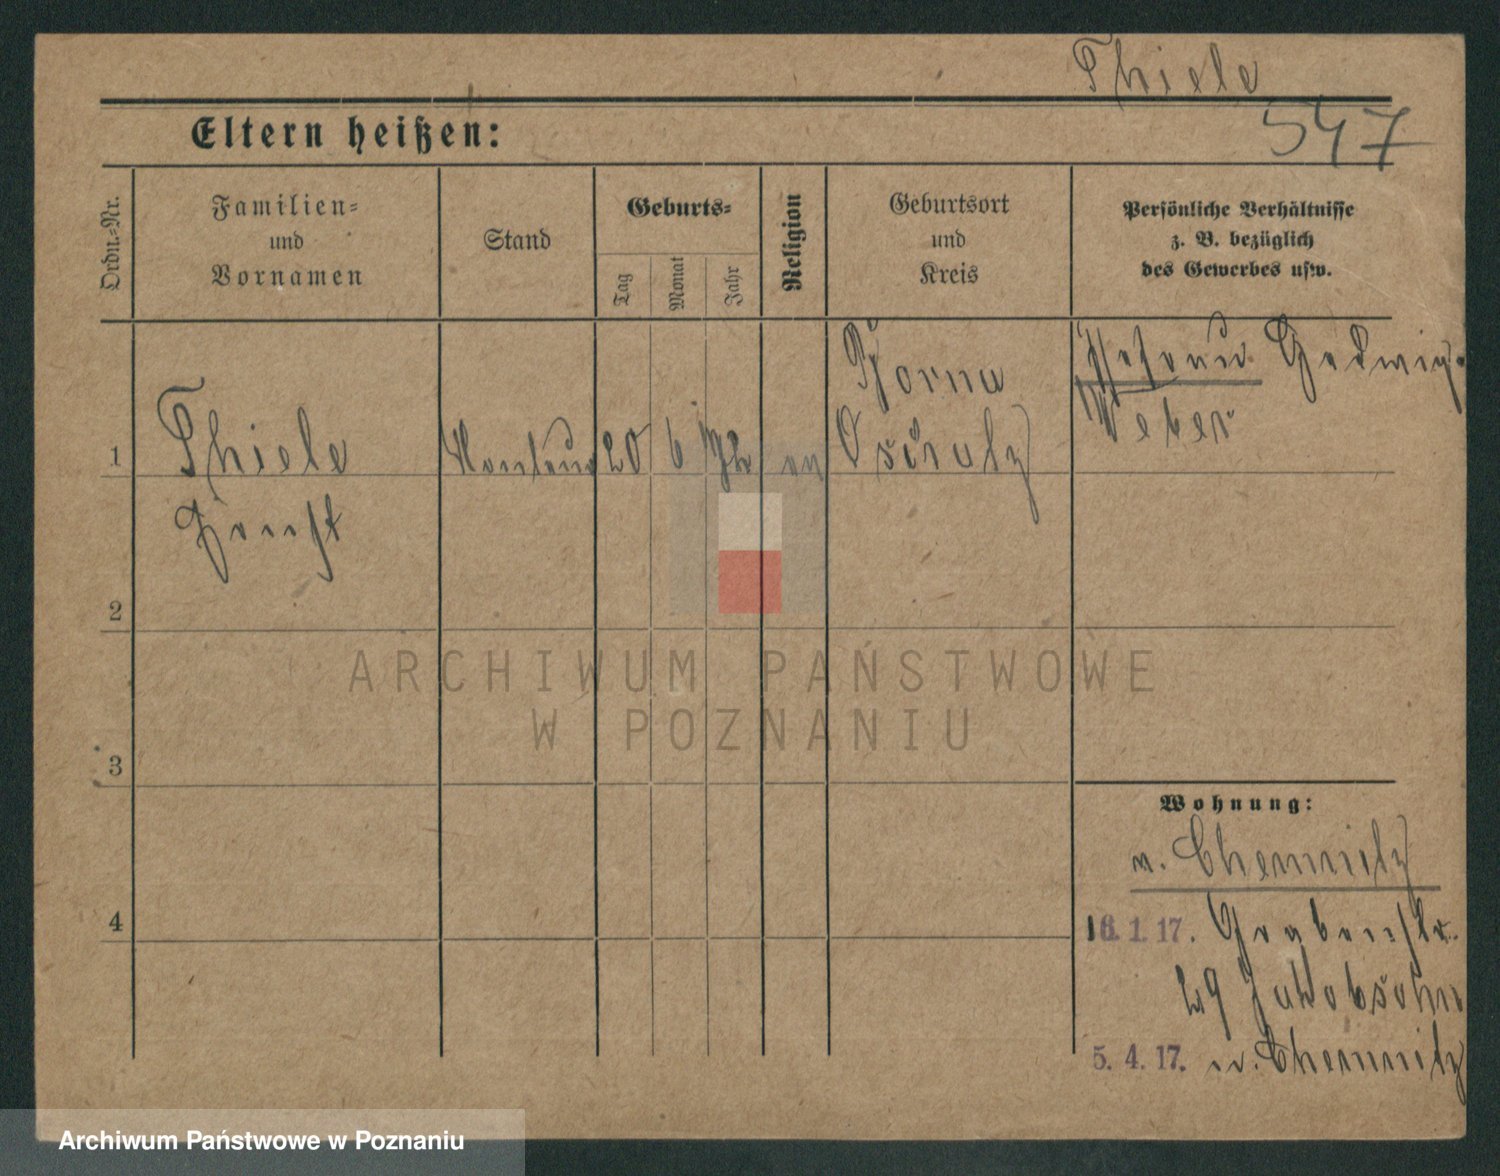 Thiele
547
Eltern heißen:
Ordn.-Nr.
Familien-
und
Vornamen
Stand
Geburts-
Tag
Monat
Jahr
Religion
Geburtsort
und
Kreis
Persönliche Verhältnisse
z. B. bezüglich
des Gewerbes usw.
1
Thiele
Ernst
20 6 92
ev
Borna
Oschatz
Ehefrau Hedwig
Weber
2
3
4
ARCHIWUM PAŃSTWOWE
W POZNANIU
Wohnung:
v. Chemnitz
16. 1. 17. Grabenstr.
29 Jakobsohn
5. 4. 17. n. Chemnitz
Archiwum Państwowe w Poznaniu